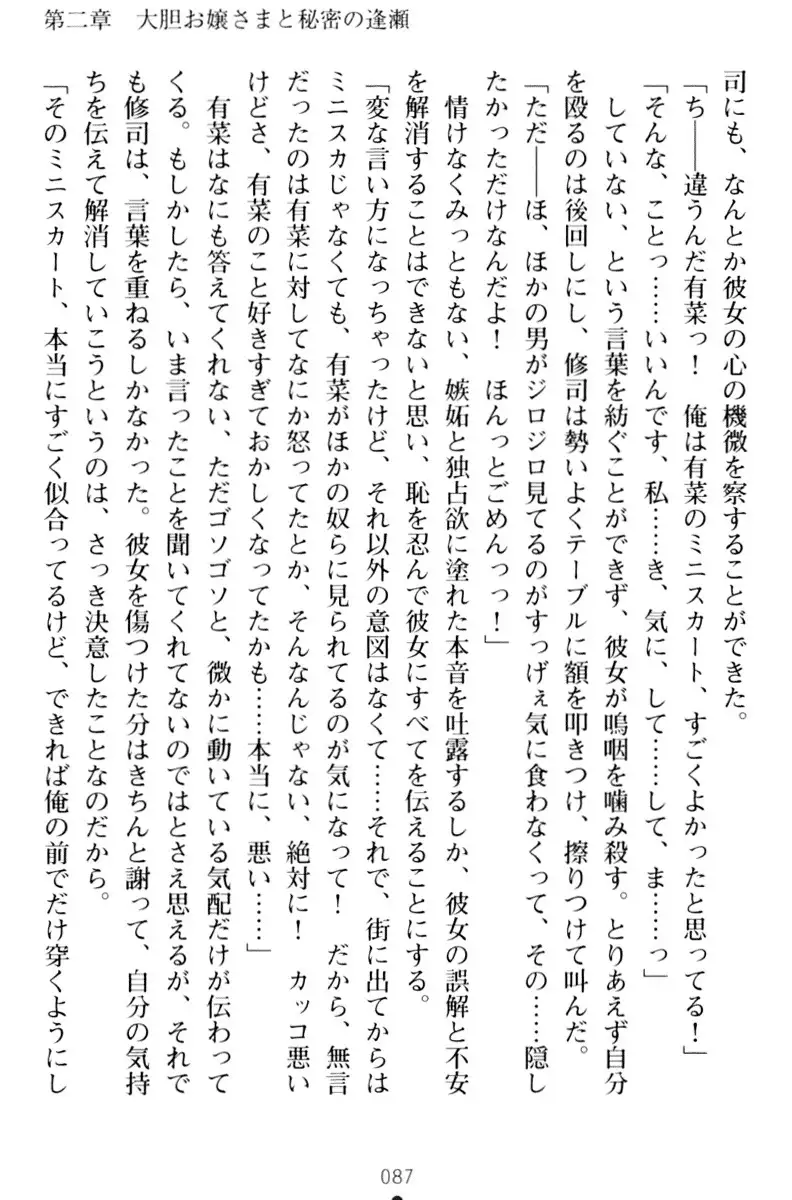 第二章　大胆お嬢さまと秘密の逢瀬
司にも、なんとか彼女の心の機微を察することができた。
「ち――違うんだ有菜っ！　俺は有菜のミニスカート、すごくよかったと思ってる！」
「そんな、ことっ……いいんです、私……き、気に、して……して、ま……っ」
　していない、という言葉を紡ぐことができず、彼女が嗚咽を噛み殺す。とりあえず自分
を殴るのは後回しにし、修司は勢いよくテーブルに額を叩きつけ、擦りつけて叫んだ。
「ただ――ほ、ほかの男がジロジロ見てるのがすっげぇ気に食わなくって、その……隠し
たかっただけなんだよ！　ほんっとごめんっっ！」
　情けなくみっともない、嫉妬と独占欲に塗れた本音を吐露するしか、彼女の誤解と不安
を解消することはできないと思い、恥を忍んで彼女にすべてを伝えることにする。
「変な言い方になっちゃったけど、それ以外の意図はなくて……それで、街に出てからは
ミニスカじゃなくても、有菜がほかの奴らに見られてるのが気になって！　だから、無言
だったのは有菜に対してなにか怒ってたとか、そんなんじゃない、絶対に！　カッコ悪い
けどさ、有菜のこと好きすぎておかしくなってたかも……本当に、悪い……」
　有菜はなにも答えてくれない、ただゴソゴソと、微かに動いている気配だけが伝わって
くる。もしかしたら、いま言ったことを聞いてくれてないのではとさえ思えるが、それで
も修司は、言葉を重ねるしかなかった。彼女を傷つけた分はきちんと謝って、自分の気持
ちを伝えて解消していこうというのは、さっき決意したことなのだから。
「そのミニスカート、本当にすごく似合ってるけど、できれば俺の前でだけ穿くようにし
087